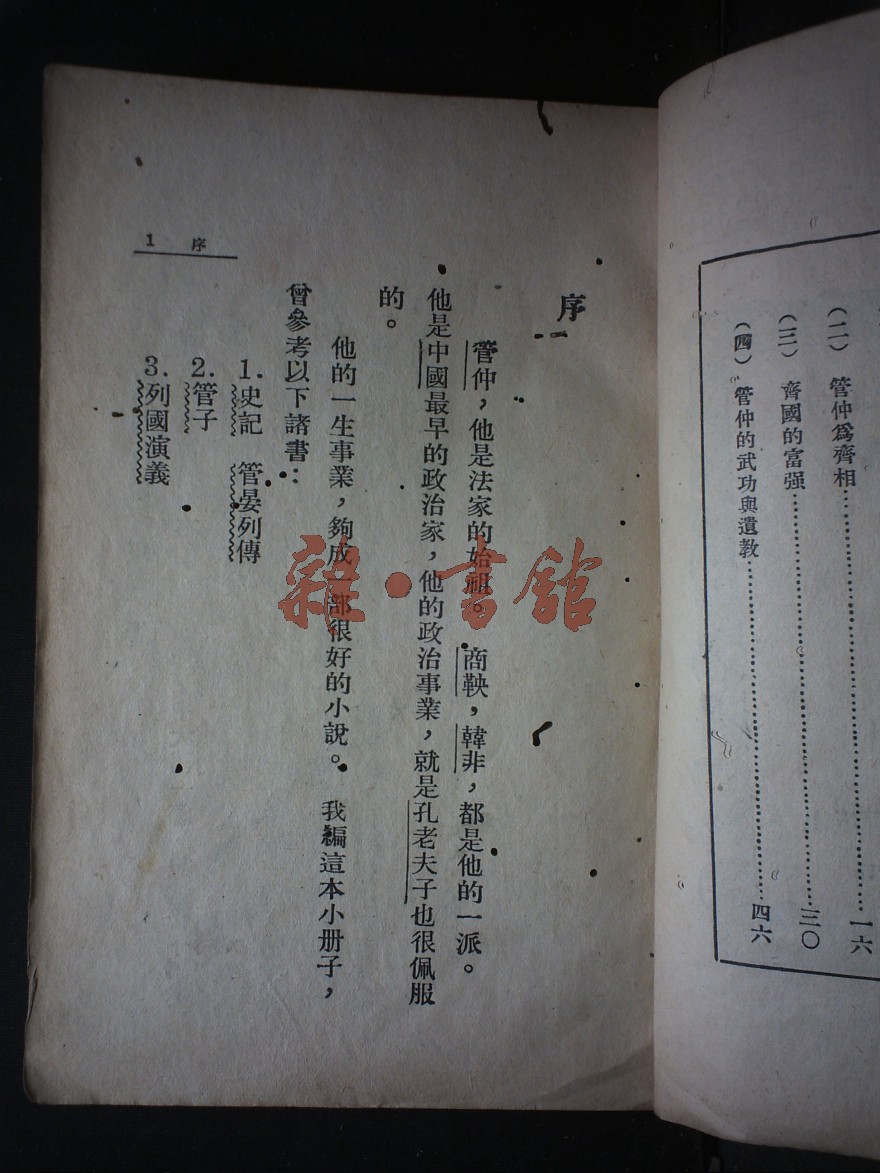 (二) 管仲爲齊相……一六
(三) 齊國的富强……三〇
(四) 管仲的武功與遺教……四六
序
管仲，他是法家的始祖。商鞅，韓非，都是他的一派。
他是中國最早的政治家，他的政治事業，就是孔老夫子也很佩服
的。
他的一生事業，夠成一部很好的小說。我編這本小册子，
曾參考以下諸書：
1. 史記 管晏列傳
2. 管子
3. 列國演義
1 序
雜·書館